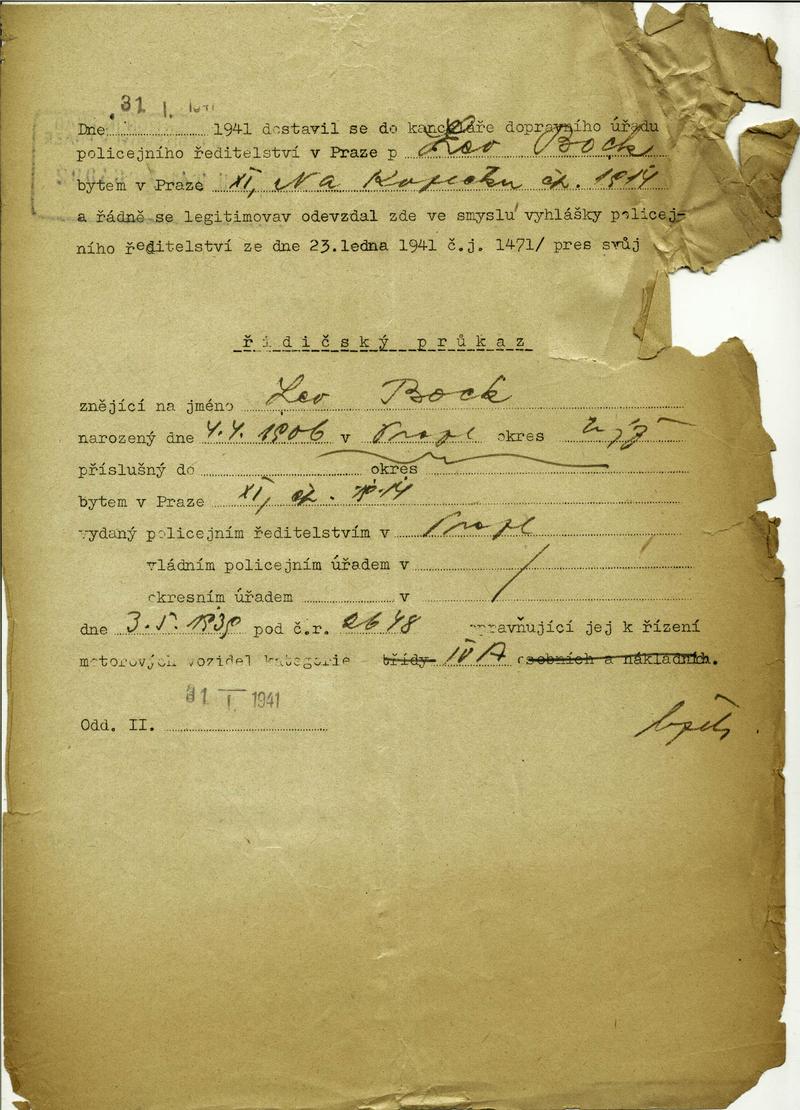 31 I. 1941
Dne 1941 dostavil se do kanceláře dopravního úřadu
policejního ředitelství v Praze p Leo Bock
bytem v Praze XI, Na čp. 1914
a řádně se legitimovav odevzdal zde ve smyslu vyhlášky policej-
ního ředitelství ze dne 23.ledna 1941 č.j. 1471/ pres svůj
řidičský průkaz
znějící na jméno Leo Bock
narozený dne 4.4. 1906 v Praze okres
příslušný do okres
bytem v Praze XI, čp. 1914
vydaný policejním ředitelstvím v Praze
vládním policejním úřadem v
okresním úřadem v
dne pod č.r. 2648 opravňující jej k řízení
motorových vozidel kategorie třídy IV A osobních a nákladních.
31 I 1941
Odd. II.